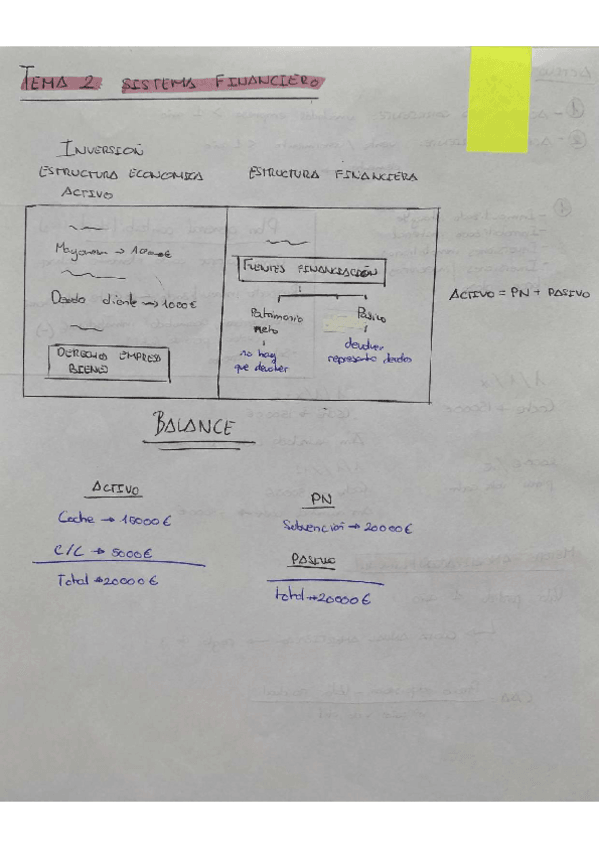 TEMA 2 SISTEMA FINANCIERO
INVERSIÓN
ESTRUCTURA ECONOMICA
ACTIVO
ESTRUCTURA FINANCIERA
→ 10000€
cliente → 1000€
DERECHOS EMPRESA
BIENES
FUENTES FINANCIACIÓN
Patrimonio
neto
no hay
que devolver
Pasivo
devolver
representa deudas
ACTIVO = PN + PASIVO
BALANCE
ACTIVO
Coche → 15000€
C/C → 5000€
Total → 20000€
PN
Subvención → 20000€
PASIVO
total → 20000€